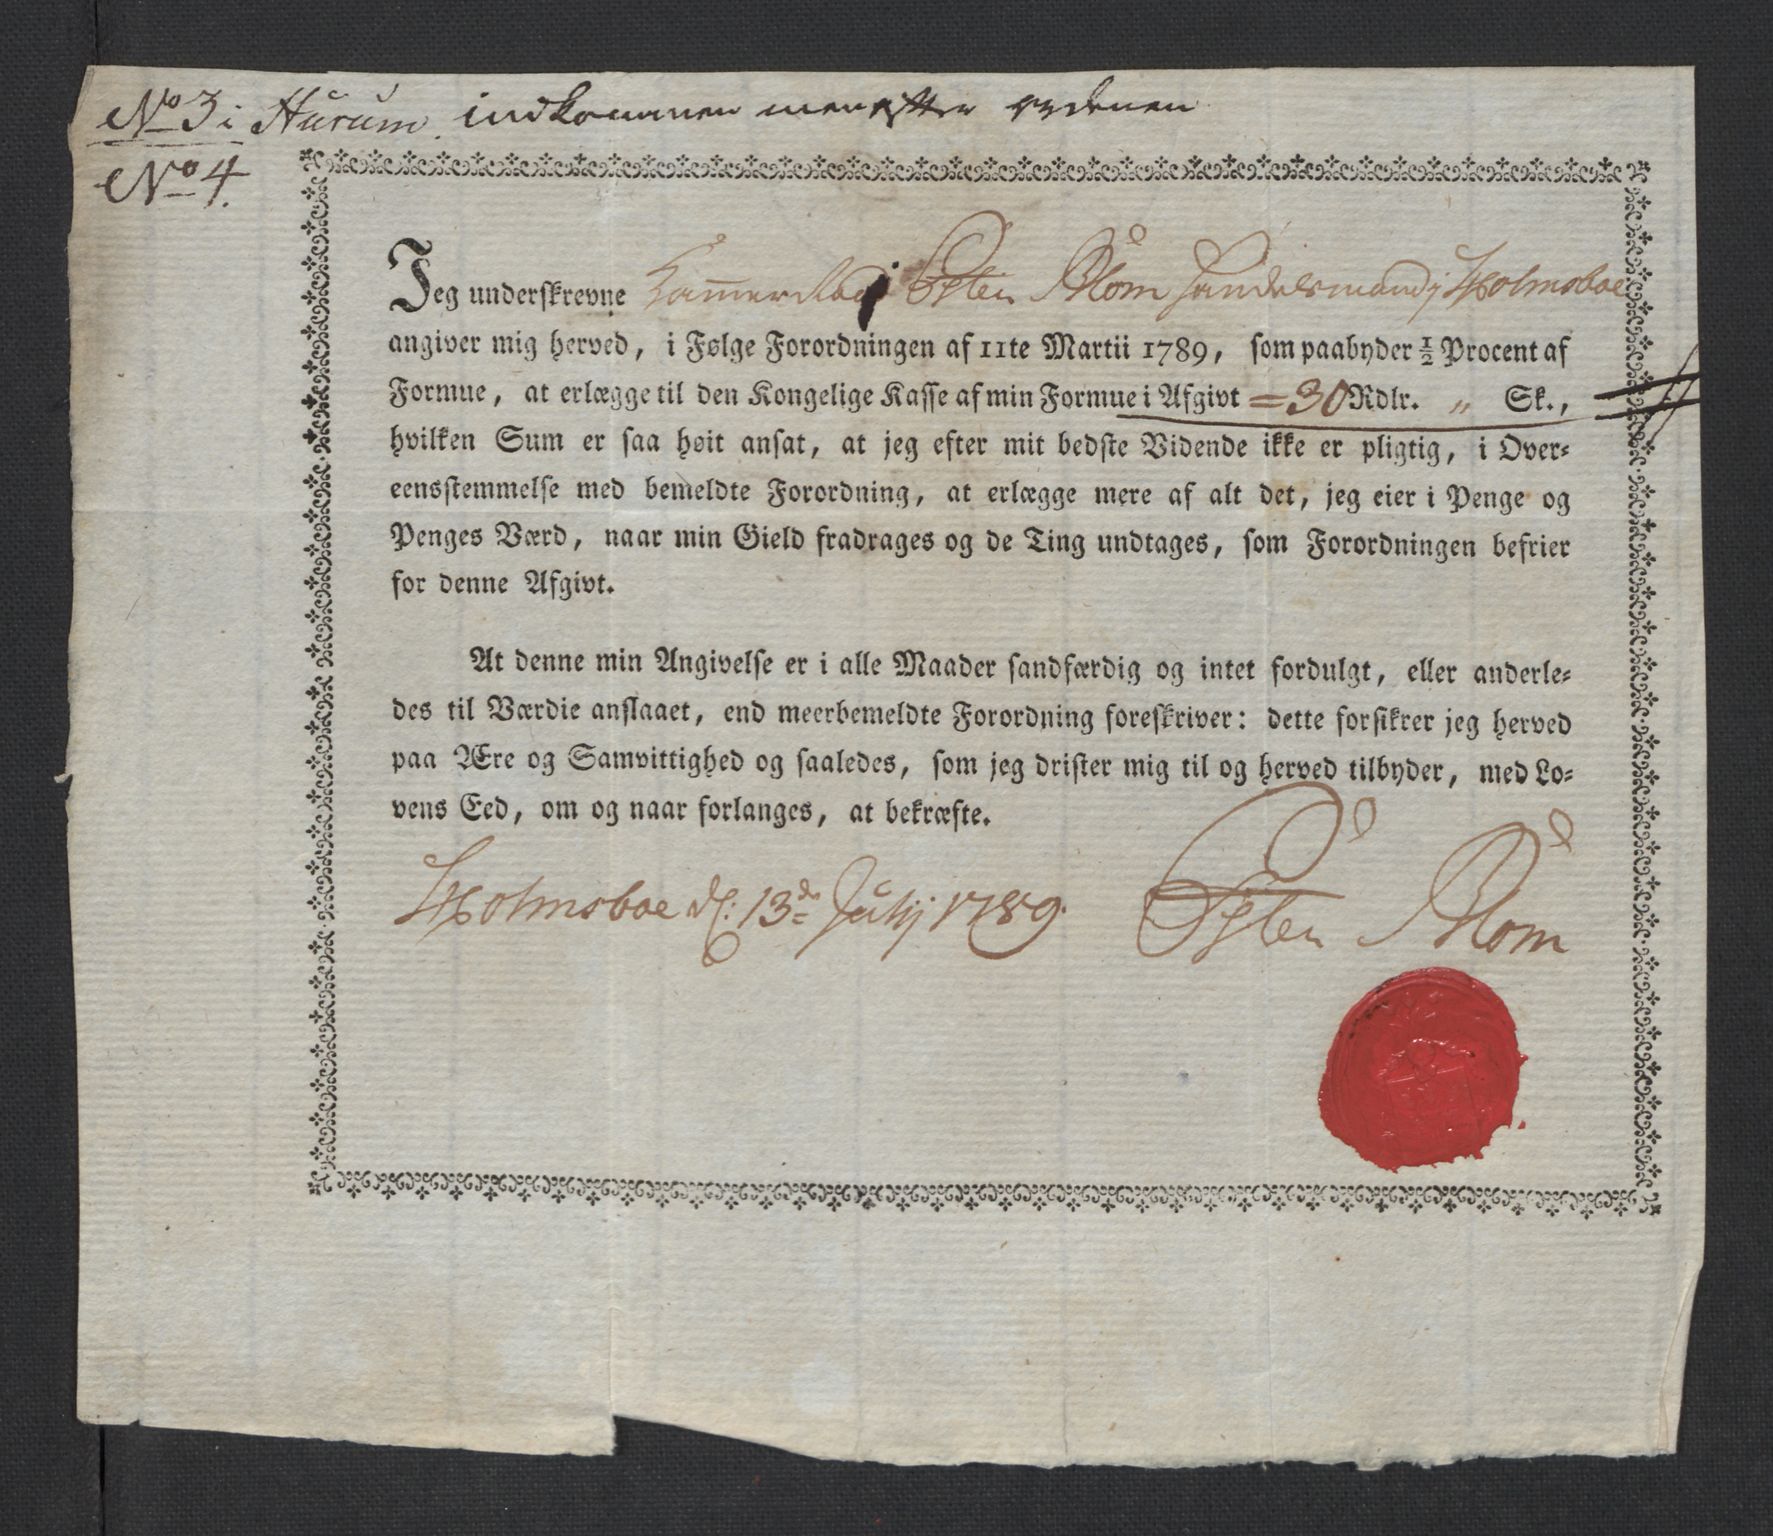 No 3 i Hurum indkommen men efter ordenen
No 4.
Jeg underskrevne Peter Blom Handelsmand i Holmsboe
angiver mig herved, i Følge Forordningen af 11te Martii 1789, som paabyder ½ Procent af
Formue, at erlægge til den Kongelige Kasse af min Formue i Afgivt = 30 Rdlr. „ Sk.,
hvilken Sum er saa høit ansat, at jeg efter mit bedste Vidende ikke er pligtig, i Over-
eensstemmelse med bemeldte Forordning, at erlægge mere af alt det, jeg eier i Penge og
Penges Værd, naar min Gield fradrages og de Ting undtages, som Forordningen befrier
for denne Afgivt.
At denne min Angivelse er i alle Maader sandfærdig og intet fordulgt, eller anderle-
des til Værdie anslaaet, end meerbemeldte Forordning foreskriver: dette forsikrer jeg herved
paa Ære og Samvittighed og saaledes, som jeg drister mig til og herved tilbyder, med Lo-
vens Eed, om og naar forlanges, at bekræfte.
Holmsboe d: 13de Julij 1789. Peter Blom